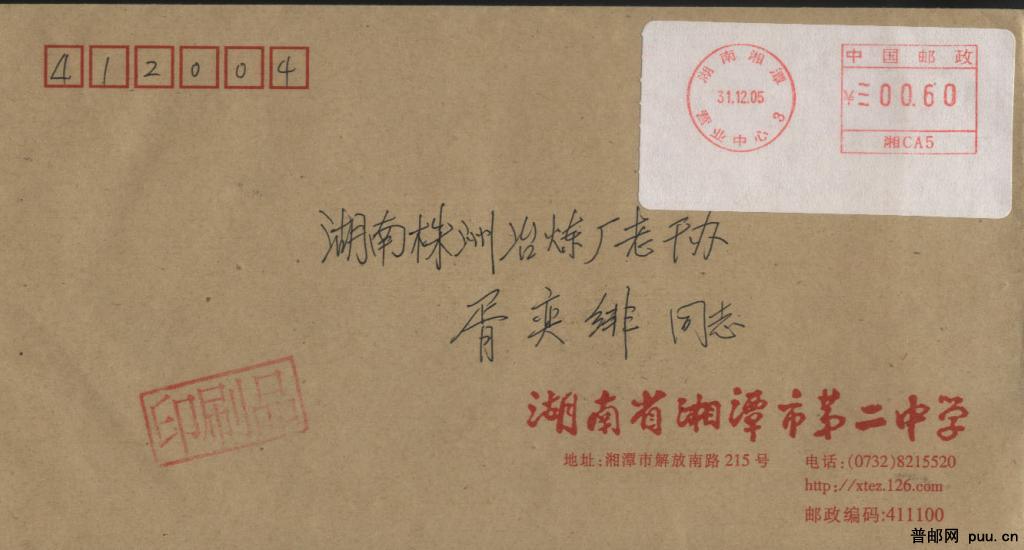 412004
湖南湘潭
31.12.05
营业中心 3
中国邮政
¥三00.60
湘CA5
湖南株洲冶炼厂老干办
胥奕绯 同志
印刷品
湖南省湘潭市第二中学
地址:湘潭市解放南路 215 号 电话:(0732)8215520
http://xtez.126.com
邮政编码:411100
普邮网 puu.cn